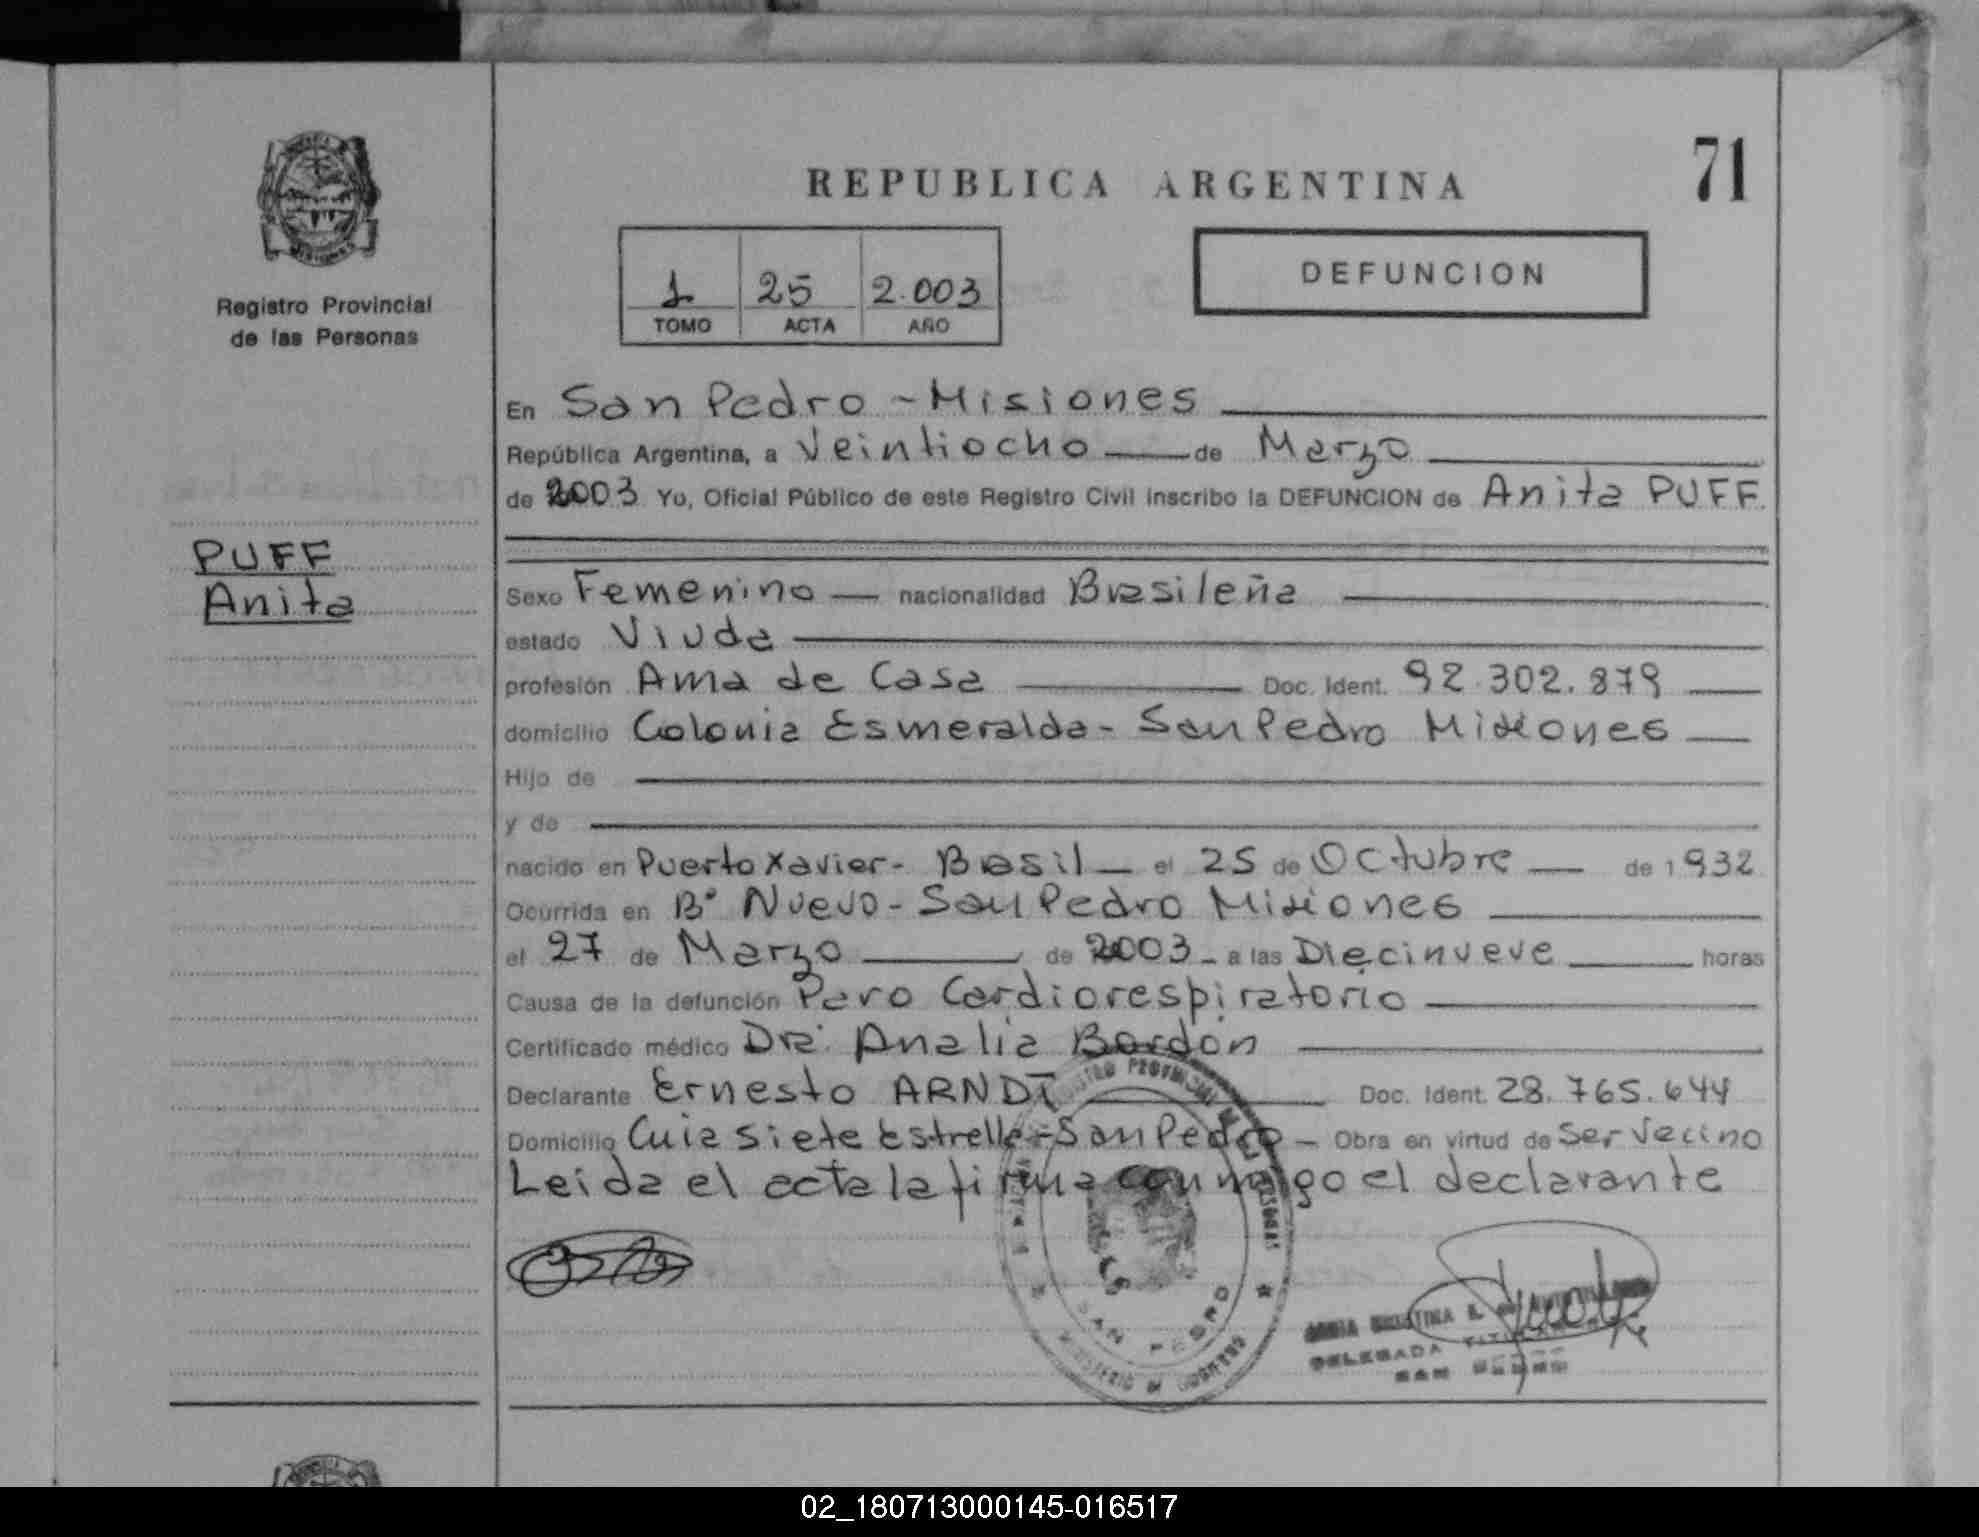 REPUBLICA ARGENTINA
71
Registro Provincial
de las Personas
1 25 2.003
TOMO ACTA AÑO
DEFUNCION
PUFF
Anita
En San Pedro - Misiones
República Argentina, a Veintiocho de Marzo
de 2003 Yo, Oficial Público de este Registro Civil inscribo la DEFUNCION de Anita PUFF
Sexo Femenino nacionalidad Brasileña
estado Viuda
profesión Ama de Casa Doc. Ident. 92.302.879
domicilio Colonia Esmeralda - San Pedro Misiones
Hijo de
y de
nacido en Puerto Xavier - Brasil el 25 de Octubre de 1932
Ocurrida en B° Nuevo - San Pedro Misiones
el 27 de Marzo de 2003 - a las Diecinueve horas
Causa de la defunción Paro Cardiorespiratorio
Certificado médico Dra. Analia Bordón
Declarante Ernesto ARNDT Doc. Ident. 28.765.644
Domicilio Cuia Siete Estrella - San Pedro - Obra en virtud de Ser Vecino
Leida el acta la firma conmigo el declarante
SAN PEDRO
DELEGADA TITULAR
SAN PEDRO
02_180713000145-016517